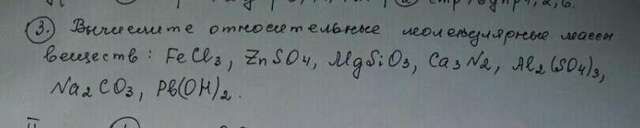 3. Вычислите относительные молекулярные массы
веществ: FeCl3, ZnSO4, MgSiO3, Ca3N2, Al2(SO4)3,
Na2CO3, Pb(OH)2.
II